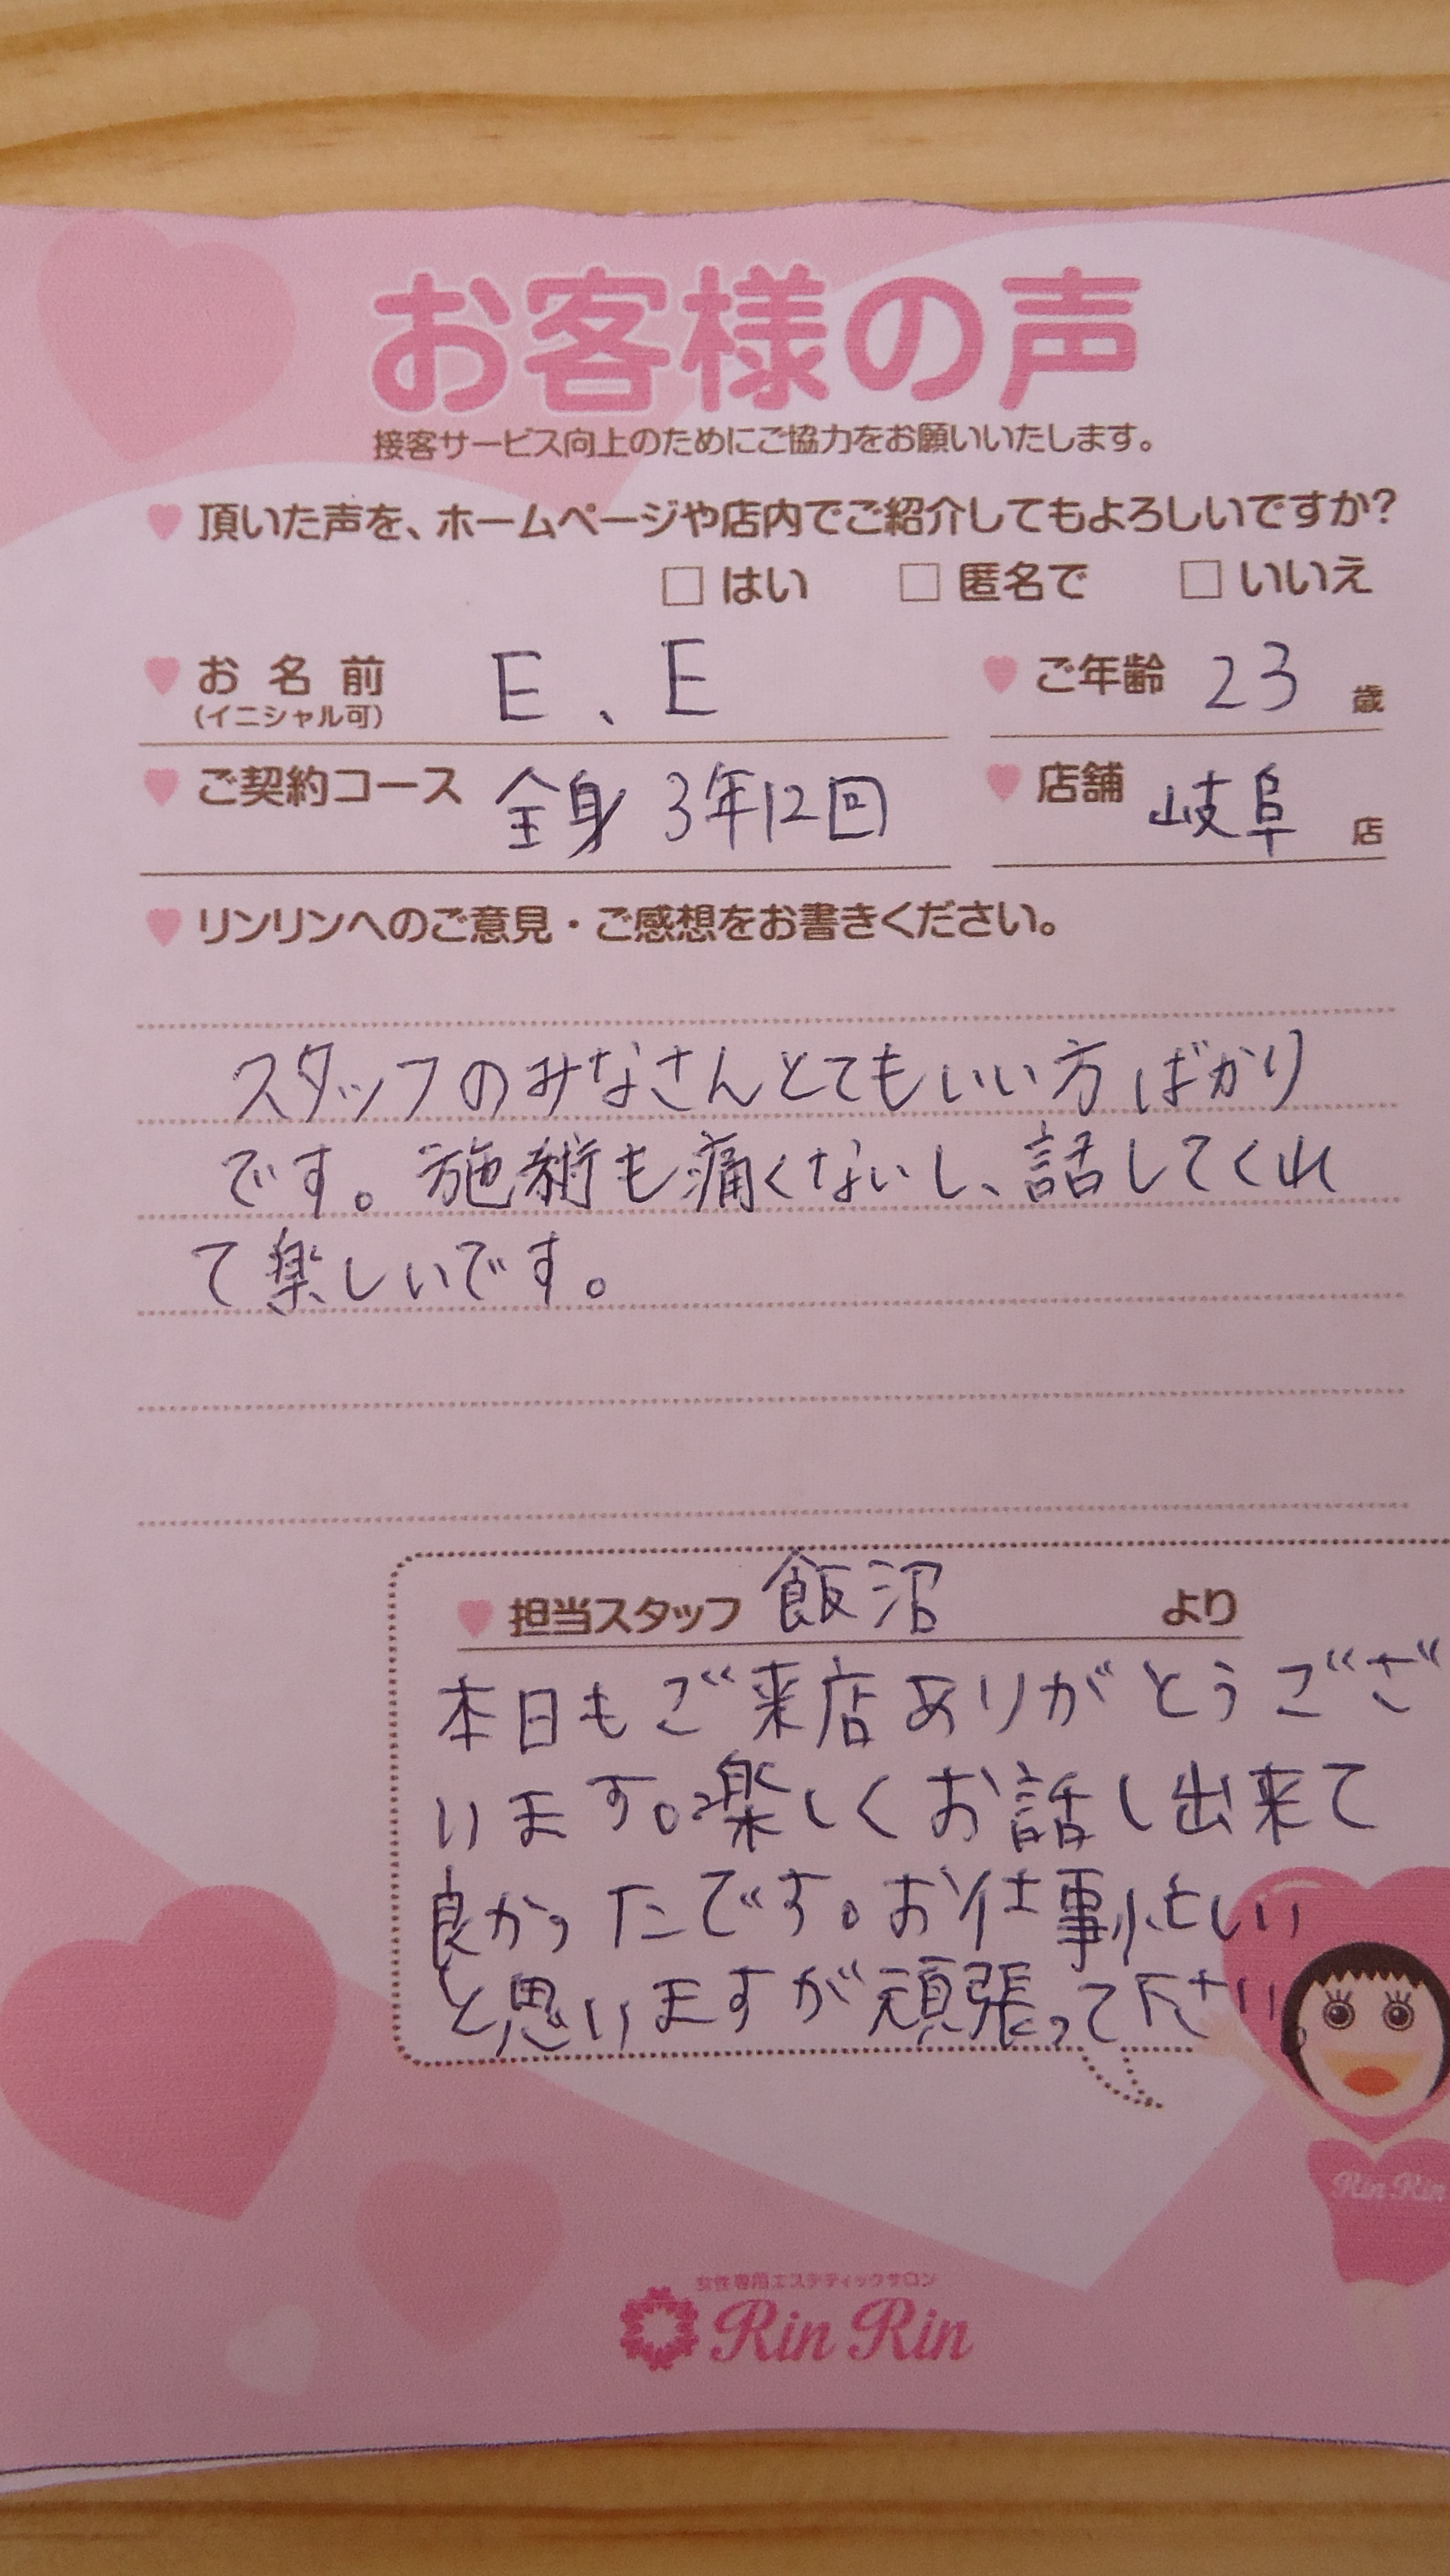 お客様の声
接客サービス向上のためにご協力をお願いいたします。
頂いた声を、ホームページや店内でご紹介してもよろしいですか？
□ はい □ 匿名で □ いいえ
お名前 E、E ご年齢 23 歳
(イニシャル可)
ご契約コース 全身 3年12回 店舗 岐阜 店
リンリンへのご意見・ご感想をお書きください。
スタッフのみなさんとてもいい方ばかり
です。施術も痛くないし、話してくれ
て楽しいです。
担当スタッフ 飯沼 より
本日もご来店ありがとうござ
います。楽しくお話し出来て
良かったです。お仕事忙しい
と思いますが頑張って下さい
Rin Rin
女性専用エステティックサロン
Rin Rin